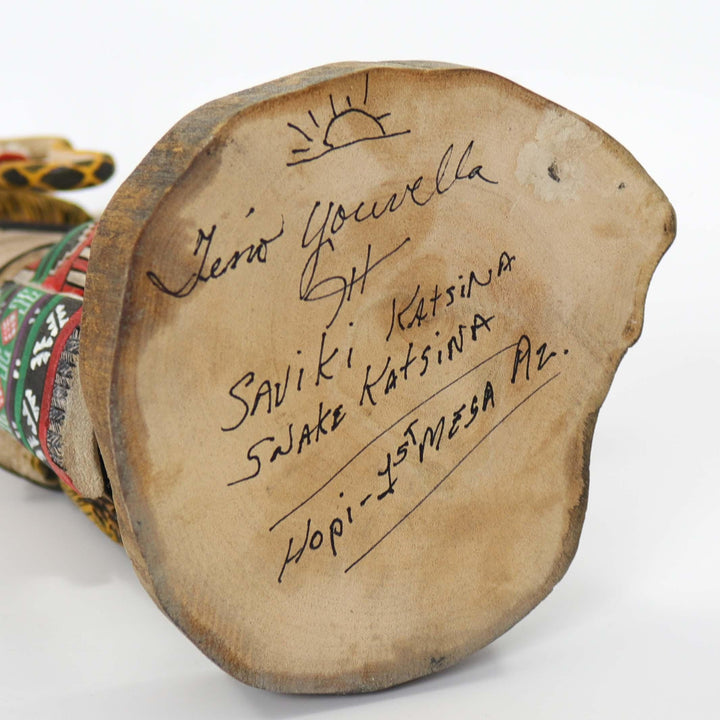 Tino Youvella
GH
SAViKi KAtsiNA
SNAKE KAtsiNA
Hopi-1ST MESA Az.